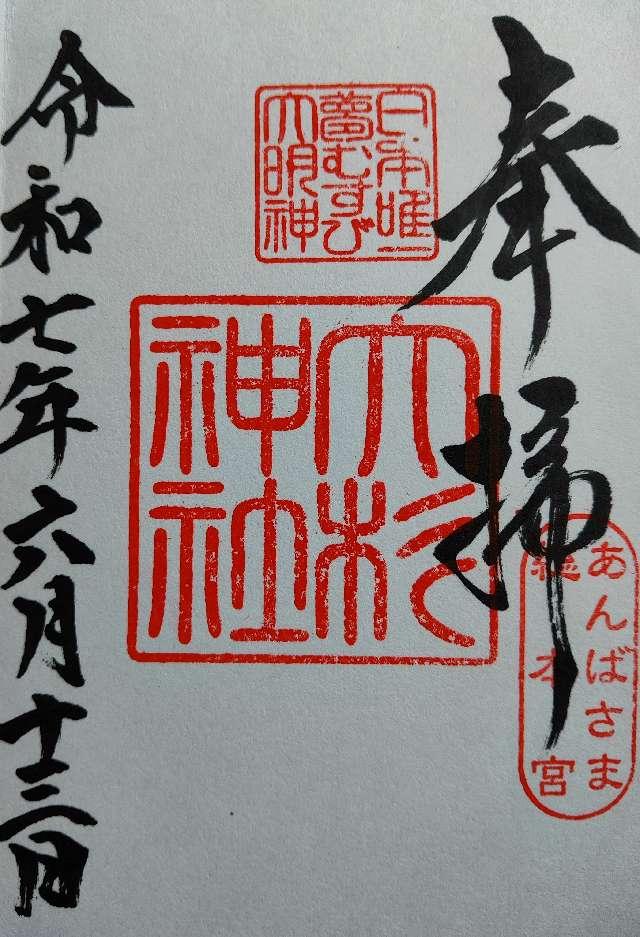 奉掃
あんばさま
総本宮
日本唯一
夢むすび
大明神
大杉
神社
令和七年六月十三日